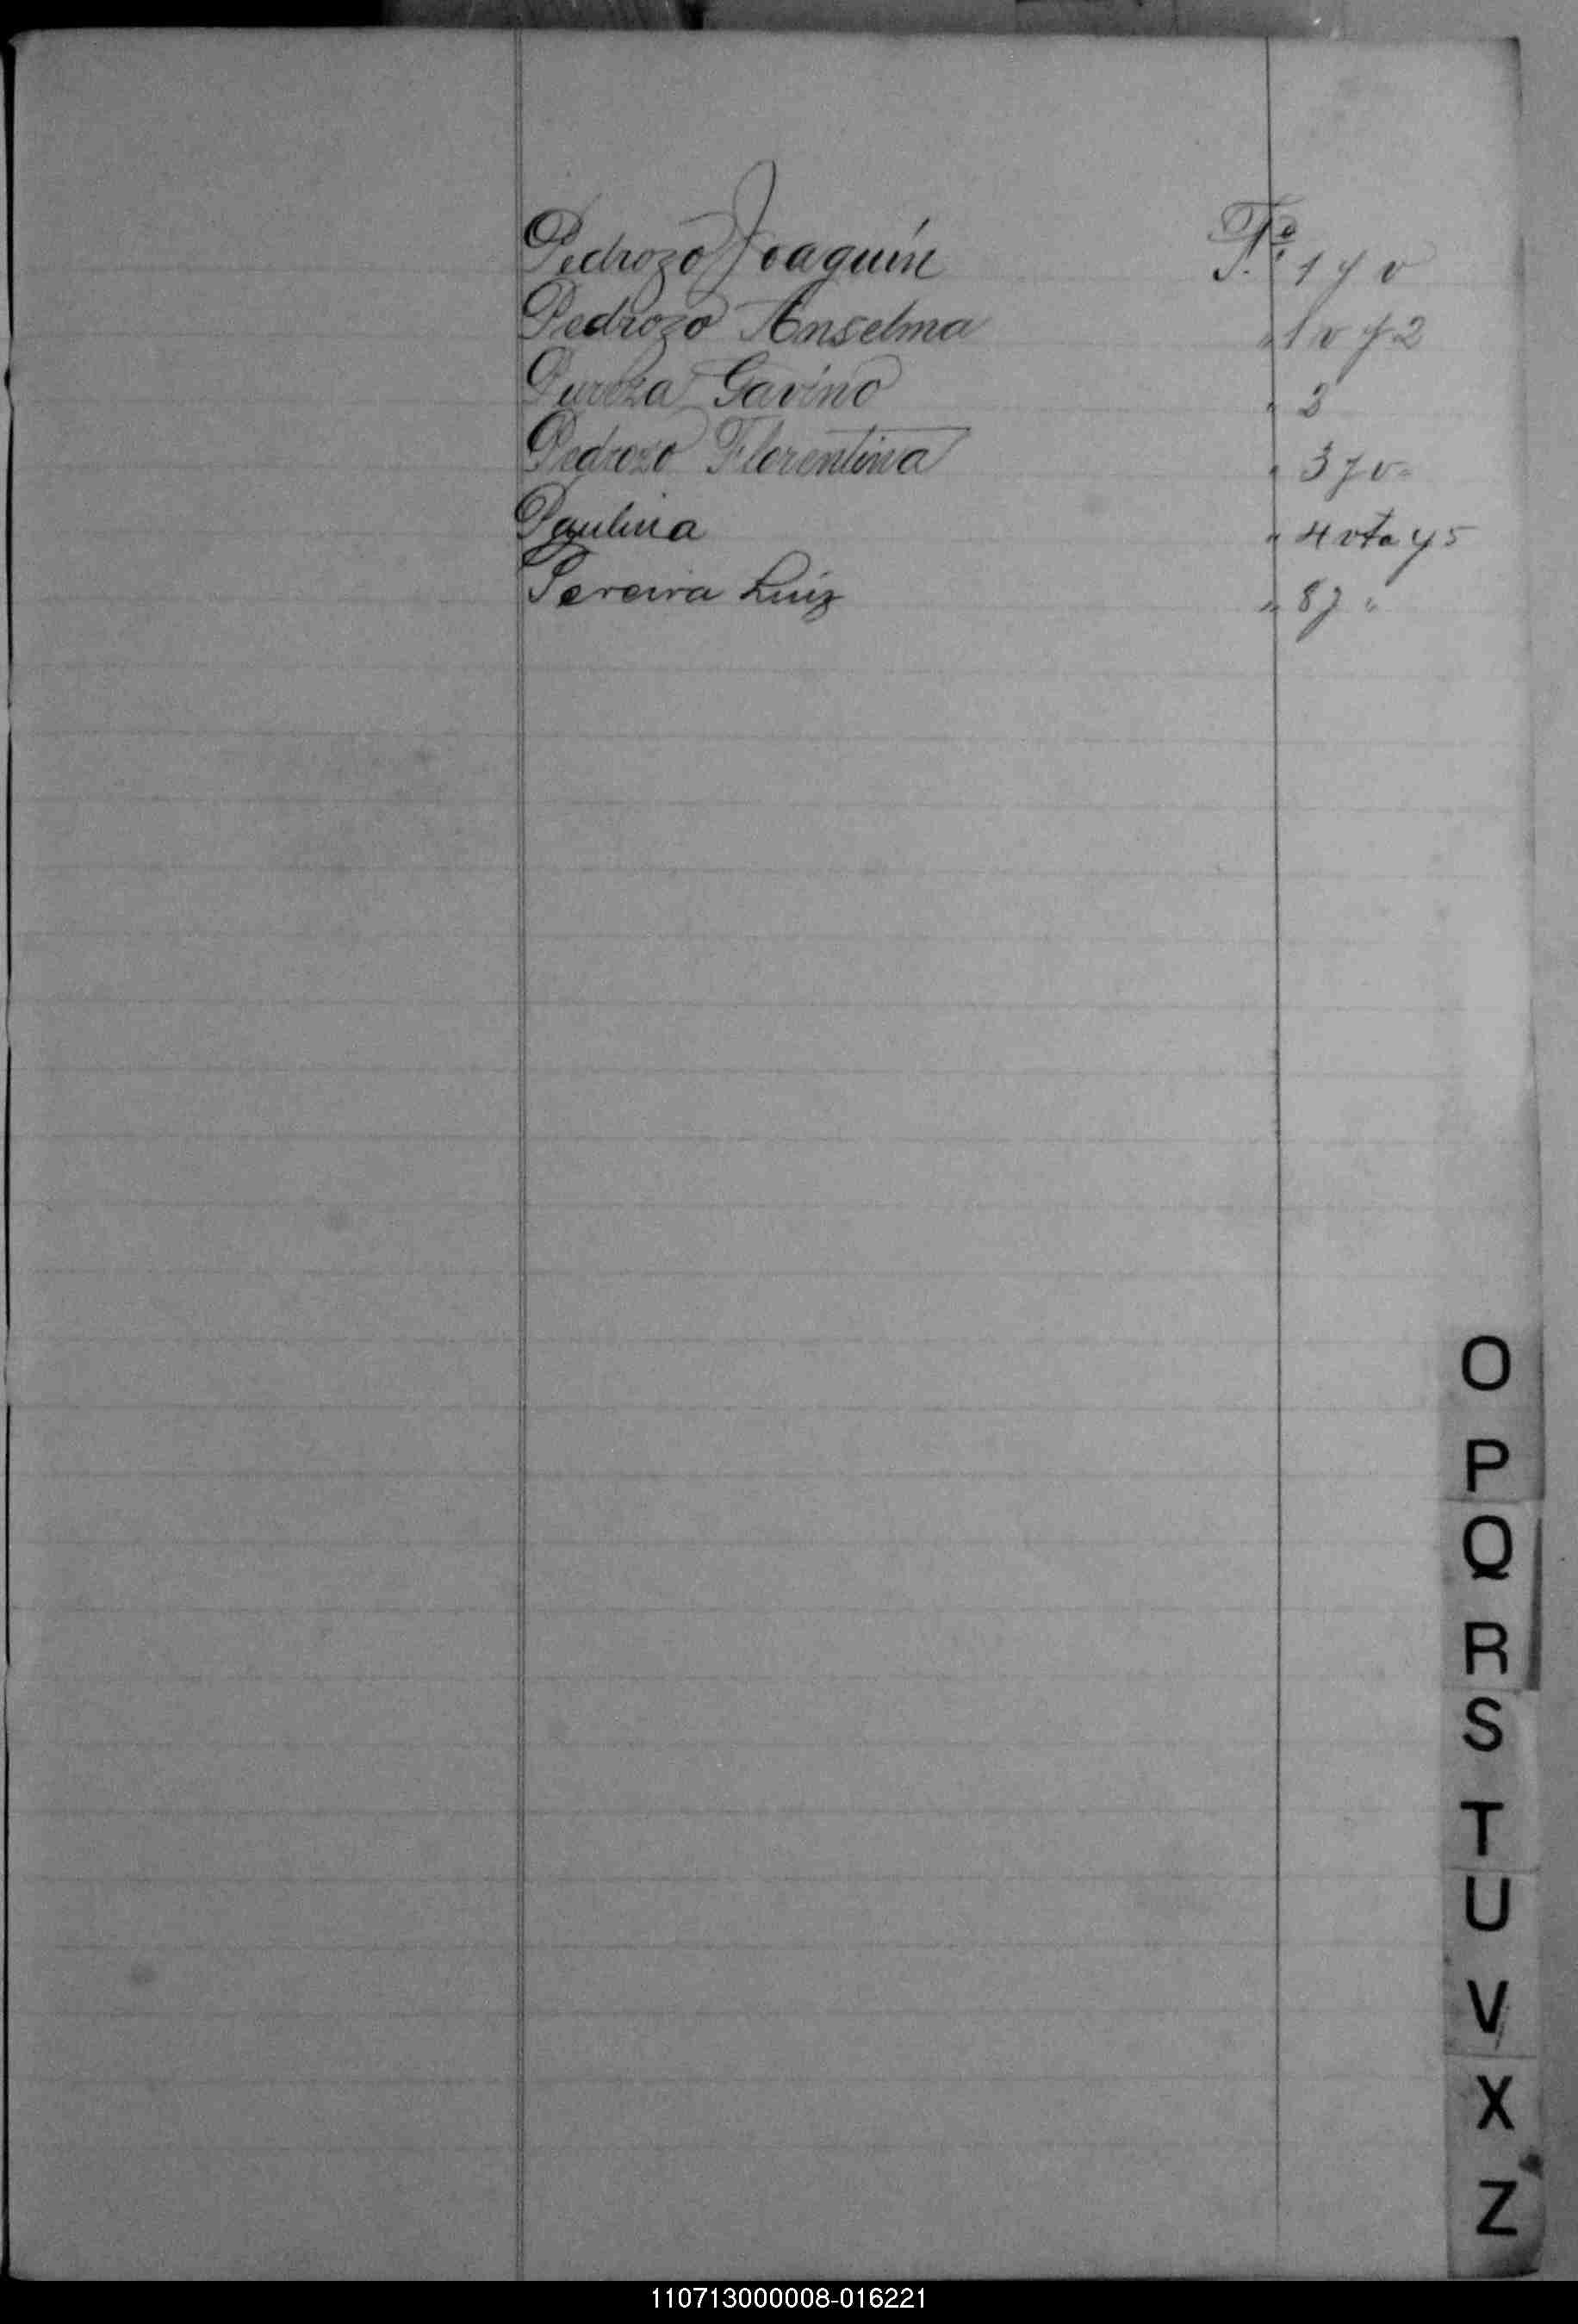 Pedrozo Joaquín Fº 1 y v
Pedrozo Anselma " 1 v y 2
Gavino " 3
Pedrozo Florentina " 3 y v
Paulina " 4 vta y 5
Pereira Luiz " 8 y "
O
P
Q
R
S
T
U
V
X
Z
110713000008-016221